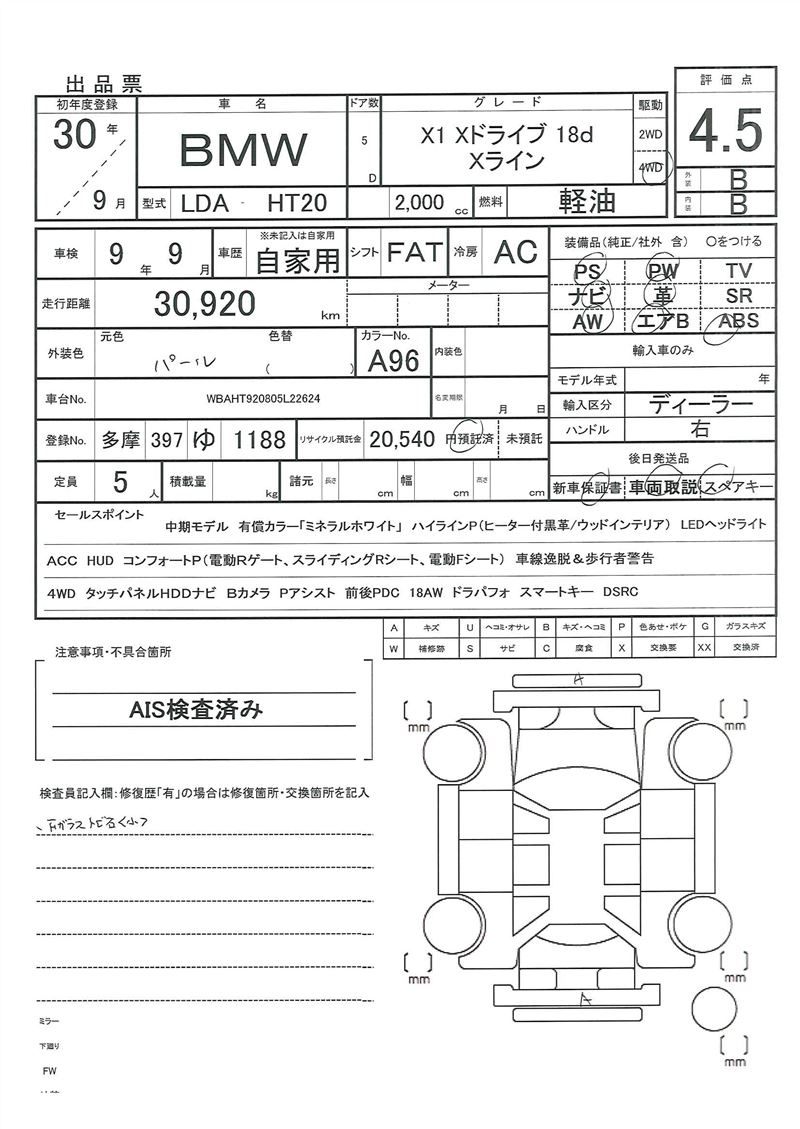 出品票
初年度登録 車名 ドア数 グレード 駆動 評価点
30年 9月 BMW 5 D X1 Xドライブ 18d Xライン 2WD 4WD 4.5
型式 LDA - HT20 2,000 cc 燃料 軽油 外装 B 内装 B
車検 9年 9月 車歴 ※未記入は自家用 自家用 シフト FAT 冷房 AC
装備品(純正/社外 含) ○をつける
PS PW TV
ナビ 革 SR
AW エアB ABS
走行距離 30,920 km メーター
外装色 元色 パール 色替 ( ) カラーNo. A96 内装色
輸入車のみ
モデル年式 年
車台No. WBAHT920805L22624 名変期限 月 日
輸入区分 ディーラー
ハンドル 右
登録No. 多摩 397 ゆ 1188 リサイクル預託金 20,540 円預託済 未預託
後日発送品
新車保証書 車両取説 スペアキー
定員 5 人 積載量 kg 諸元 長さ cm 幅 cm 高さ cm
セールスポイント 中期モデル 有償カラー「ミネラルホワイト」 ハイラインP(ヒーター付黒革/ウッドインテリア) LEDヘッドライト
ACC HUD コンフォートP(電動Rゲート、スライディングRシート、電動Fシート) 車線逸脱&歩行者警告
4WD タッチパネルHDDナビ Bカメラ Pアシスト 前後PDC 18AW ドラパフォ スマートキー DSRC
A キズ U ヘコミ・オサレ B キズ・ヘコミ P 色あせ・ボケ G ガラスキズ
W 補修跡 S サビ C 腐食 X 交換要 XX 交換済
注意事項・不具合箇所
AIS検査済み
検査員記入欄:修復歴「有」の場合は修復箇所・交換箇所を記入
ミラー
下廻り
FW
A
[ ] mm [ ] mm
[ ] mm [ ] mm
A
[ ] mm